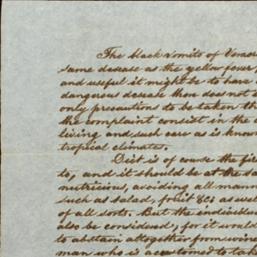 The black vomito of Vera
same disease as the yellow fever,
and useful it might be to have a
dangerous disease there does not
only precautions to be taken th
the complaint consist in the
living and such care as is know
tropical climates.
Diet is of course the fir
to, and it should be at the sa
nutricious, avoiding all mann
such as salad, fruit &c: as wel
of all sorts. But the individua
also be considered, for it would
to abstain altogether from wine
man who is accustomed to take